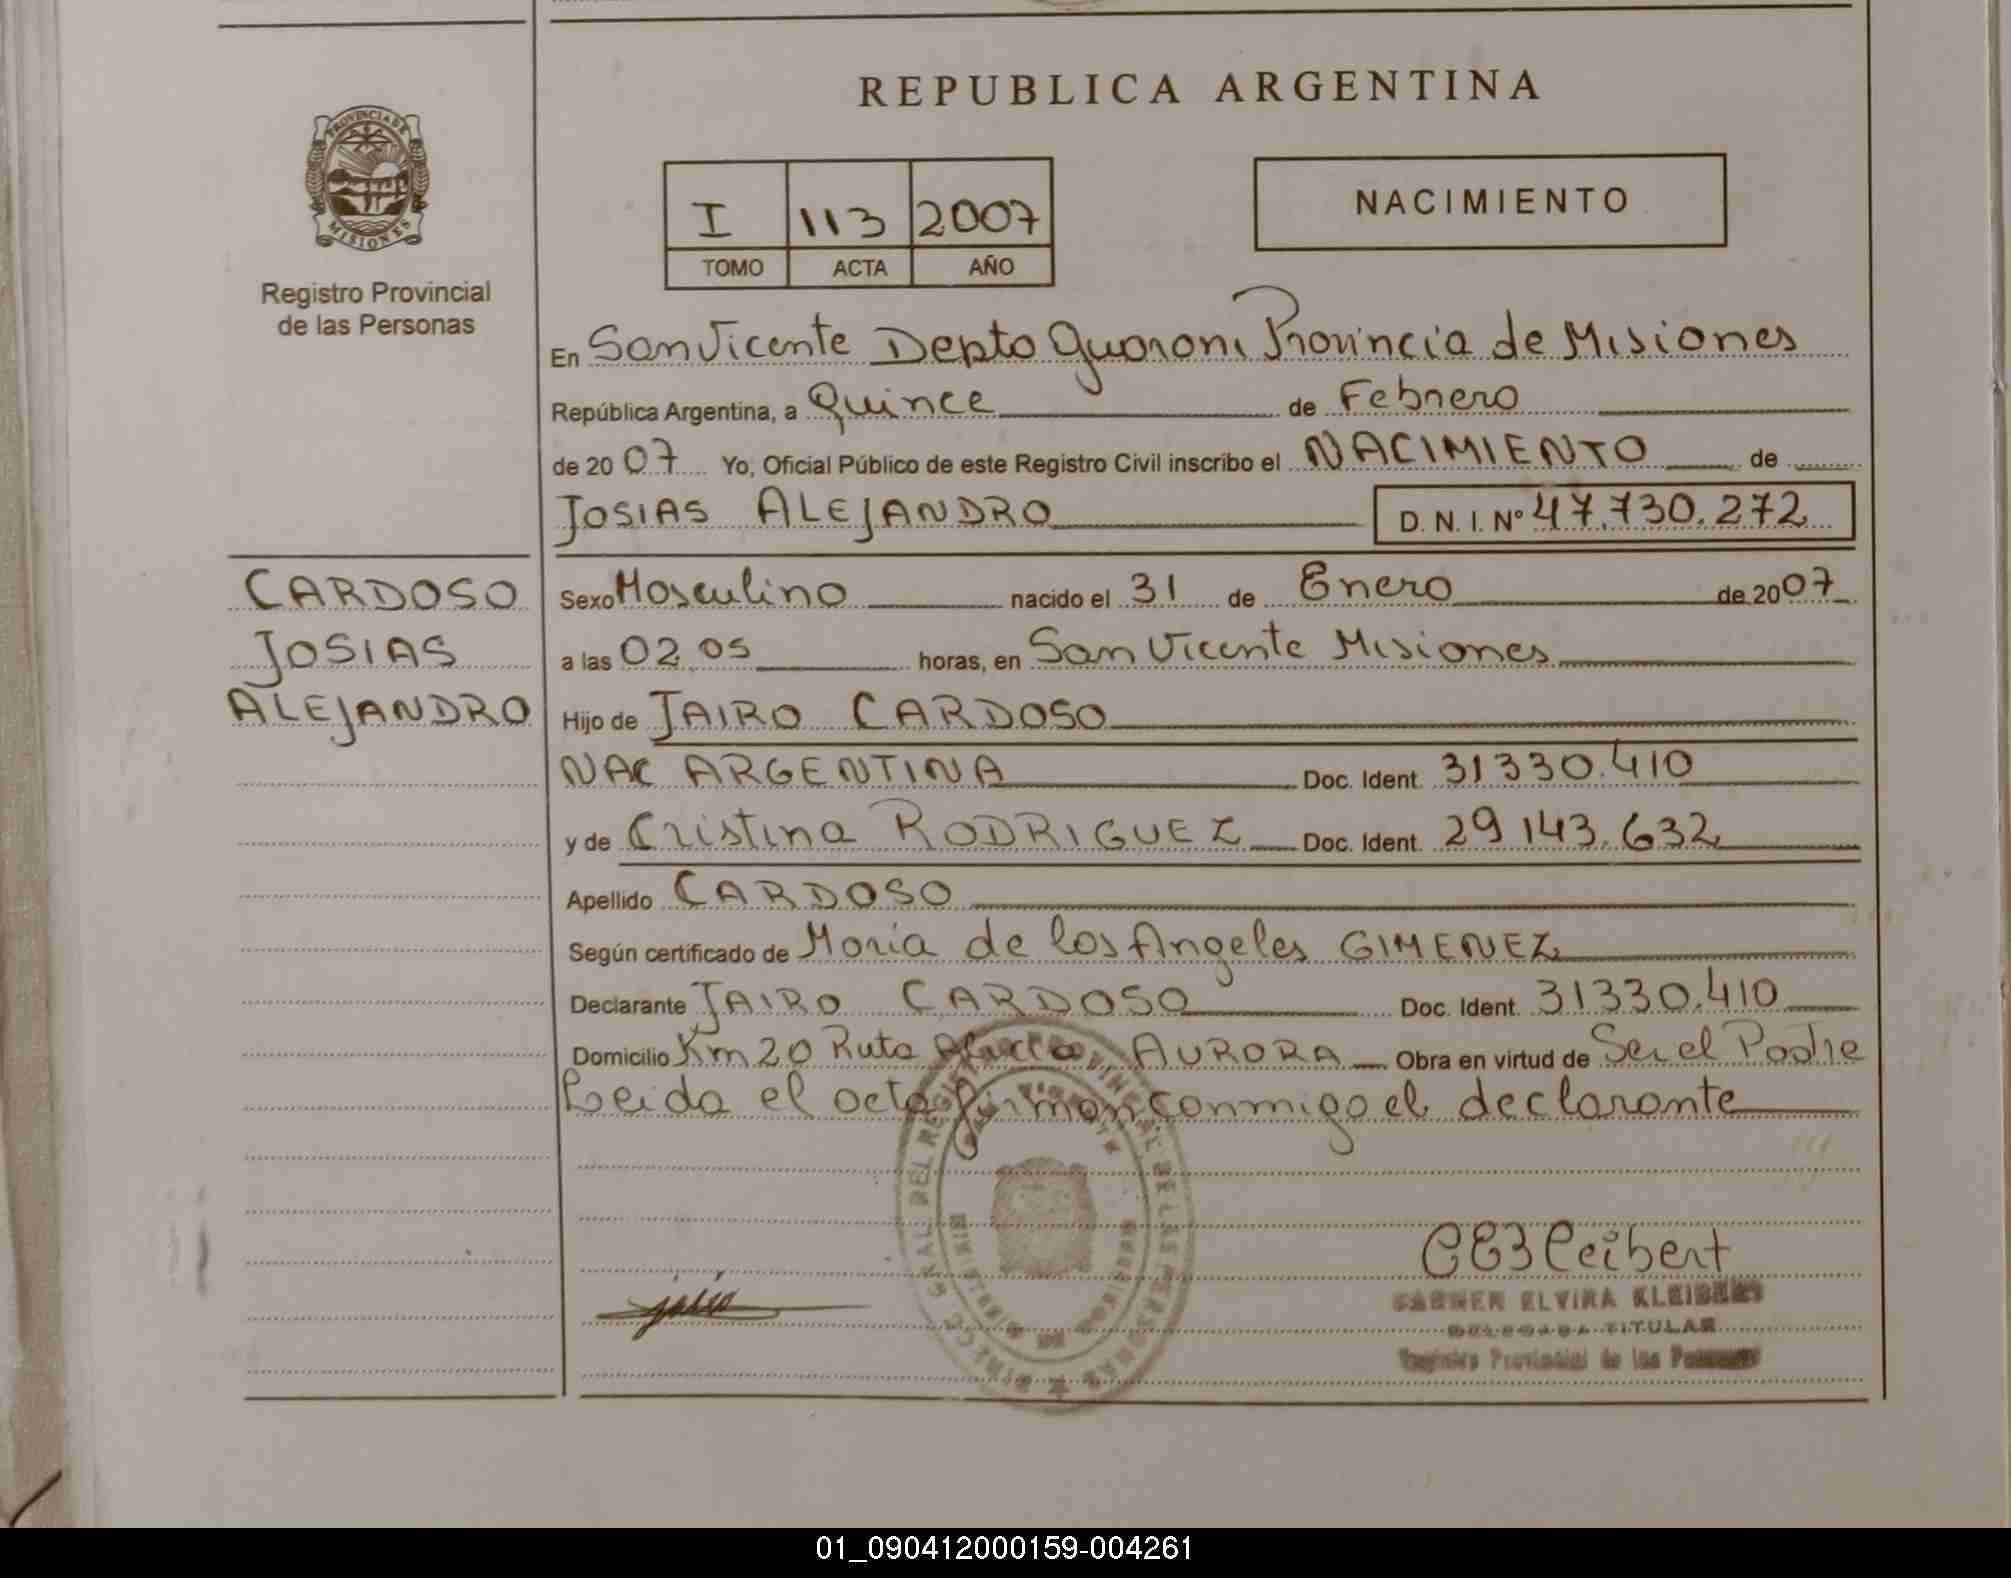 REPUBLICA ARGENTINA
PROVINCIA DE
MISIONES
Registro Provincial
de las Personas
I 113 2007
TOMO ACTA AÑO
NACIMIENTO
En San Vicente Depto Guarani Provincia de Misiones
República Argentina, a Quince de Febrero
de 2007 Yo, Oficial Público de este Registro Civil inscribo el NACIMIENTO de
JOSIAS ALEJANDRO D. N. I. Nº 47.730.272
CARDOSO
JOSIAS
ALEJANDRO
Sexo Masculino nacido el 31 de Enero de 2007
a las 02 05 horas, en San Vicente Misiones
Hijo de JAIRO CARDOSO
NAC ARGENTINA Doc. Ident. 31330.410
y de Cristina RODRIGUEZ Doc. Ident. 29 143.632
Apellido CARDOSO
Según certificado de Maria de los Angeles GIMENEZ
Declarante JAIRO CARDOSO Doc. Ident. 31330.410
Domicilio Km 20 Ruta AURORA Obra en virtud de Ser el Padre
Leida el acta firman conmigo el declarante
CARMEN ELVIRA KLEIBERT
DELEGADA TITULAR
Registro Provincial de las Personas
01_090412000159-004261